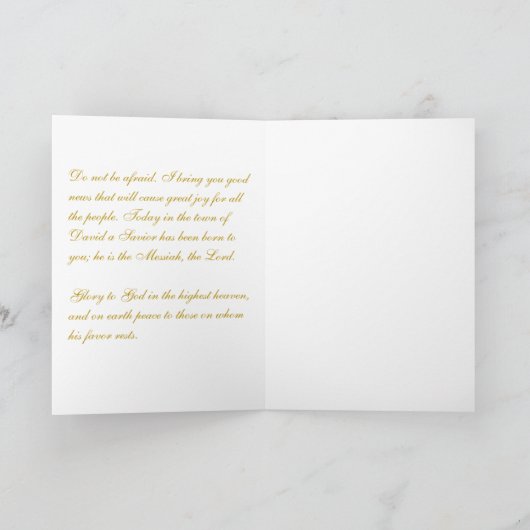 Do not be afraid. I bring you good
news that will cause great joy for all
the people. Today in the town of
David a Savior has been born to
you; he is the Messiah, the Lord.
Glory to God in the highest heaven,
and on earth peace to those on whom
his favor rests.